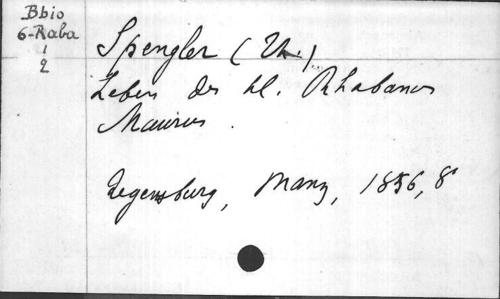 Bbio
6-Raba
1
2
Spengler (Th.)
Leben des hl. Rhabanus
Maurus.
Regensburg, Manz, 1856, 8°